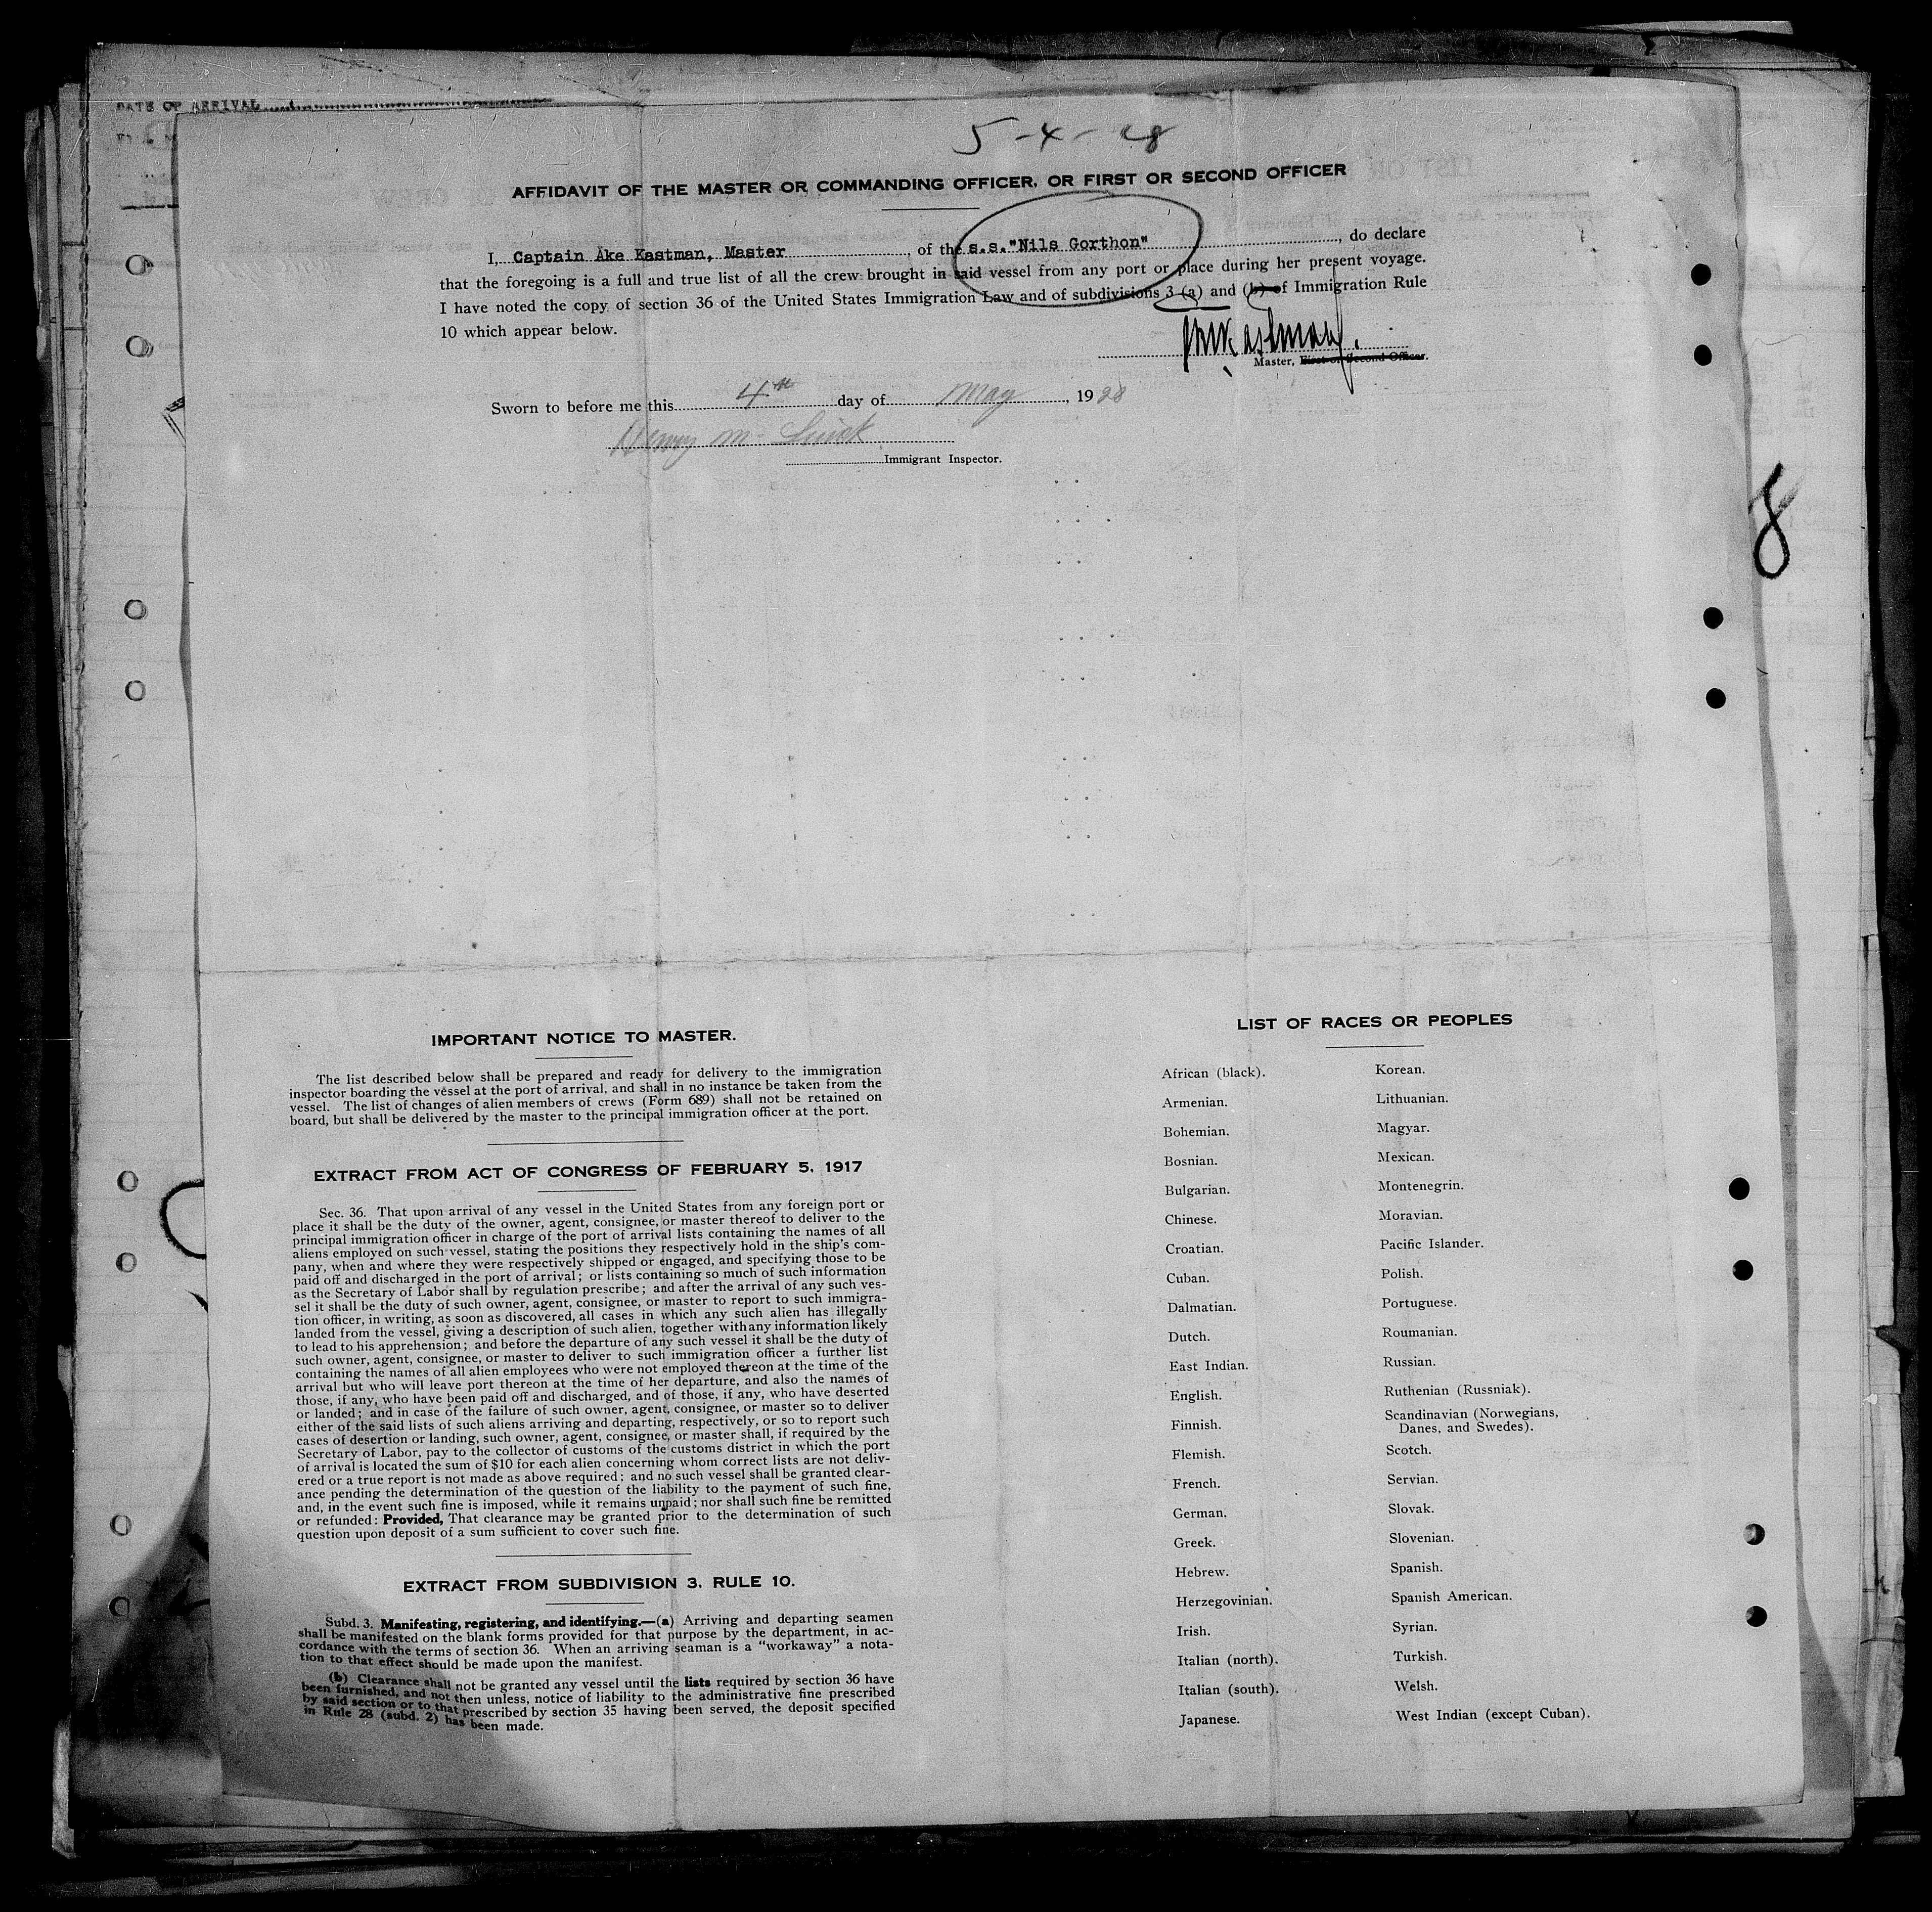 DATE OF ARRIVAL
5-4-28
AFFIDAVIT OF THE MASTER OR COMMANDING OFFICER, OR FIRST OR SECOND OFFICER
I, Captain Åke Kastman, Master, of the s.s."Nils Gorthon", do declare
that the foregoing is a full and true list of all the crew brought in said vessel from any port or place during her present voyage.
I have noted the copy of section 36 of the United States Immigration Law and of subdivisions 3 (a) and (b) of Immigration Rule
10 which appear below.
Kastman.
Master, First or Second Officer.
Sworn to before me this 4th day of May, 1928
Immigrant Inspector.
8
IMPORTANT NOTICE TO MASTER.
The list described below shall be prepared and ready for delivery to the immigration
inspector boarding the vessel at the port of arrival, and shall in no instance be taken from the
vessel. The list of changes of alien members of crews (Form 689) shall not be retained on
board, but shall be delivered by the master to the principal immigration officer at the port.
EXTRACT FROM ACT OF CONGRESS OF FEBRUARY 5, 1917
Sec. 36. That upon arrival of any vessel in the United States from any foreign port or
place it shall be the duty of the owner, agent, consignee, or master thereof to deliver to the
principal immigration officer in charge of the port of arrival lists containing the names of all
aliens employed on such vessel, stating the positions they respectively hold in the ship's com-
pany, when and where they were respectively shipped or engaged, and specifying those to be
paid off and discharged in the port of arrival; or lists containing so much of such information
as the Secretary of Labor shall by regulation prescribe; and after the arrival of any such ves-
sel it shall be the duty of such owner, agent, consignee, or master to report to such immigra-
tion officer, in writing, as soon as discovered, all cases in which any such alien has illegally
landed from the vessel, giving a description of such alien, together with any information likely
to lead to his apprehension; and before the departure of any such vessel it shall be the duty of
such owner, agent, consignee, or master to deliver to such immigration officer a further list
containing the names of all alien employees who were not employed thereon at the time of the
arrival but who will leave port thereon at the time of her departure, and also the names of
those, if any, who have been paid off and discharged, and of those, if any, who have deserted
or landed; and in case of the failure of such owner, agent, consignee, or master so to deliver
either of the said lists of such aliens arriving and departing, respectively, or so to report such
cases of desertion or landing, such owner, agent, consignee, or master shall, if required by the
Secretary of Labor, pay to the collector of customs of the customs district in which the port
of arrival is located the sum of $10 for each alien concerning whom correct lists are not deliv-
ered or a true report is not made as above required; and no such vessel shall be granted clear-
ance pending the determination of the question of the liability to the payment of such fine,
and, in the event such fine is imposed, while it remains unpaid; nor shall such fine be remitted
or refunded: Provided, That clearance may be granted prior to the determination of such
question upon deposit of a sum sufficient to cover such fine.
EXTRACT FROM SUBDIVISION 3, RULE 10.
Subd. 3. Manifesting, registering, and identifying.—(a) Arriving and departing seamen
shall be manifested on the blank forms provided for that purpose by the department, in ac-
cordance with the terms of section 36. When an arriving seaman is a "workaway" a nota-
tion to that effect should be made upon the manifest.
(b) Clearance shall not be granted any vessel until the lists required by section 36 have
been furnished, and not then unless, notice of liability to the administrative fine prescribed
by said section or to that prescribed by section 35 having been served, the deposit specified
in Rule 28 (subd. 2) has been made.
LIST OF RACES OR PEOPLES
African (black).
Armenian.
Bohemian.
Bosnian.
Bulgarian.
Chinese.
Croatian.
Cuban.
Dalmatian.
Dutch.
East Indian.
English.
Finnish.
Flemish.
French.
German.
Greek.
Hebrew.
Herzegovinian.
Irish.
Italian (north).
Italian (south).
Japanese.
Korean.
Lithuanian.
Magyar.
Mexican.
Montenegrin.
Moravian.
Pacific Islander.
Polish.
Portuguese.
Roumanian.
Russian.
Ruthenian (Russniak).
Scandinavian (Norwegians,
Danes, and Swedes).
Scotch.
Servian.
Slovak.
Slovenian.
Spanish.
Spanish American.
Syrian.
Turkish.
Welsh.
West Indian (except Cuban).